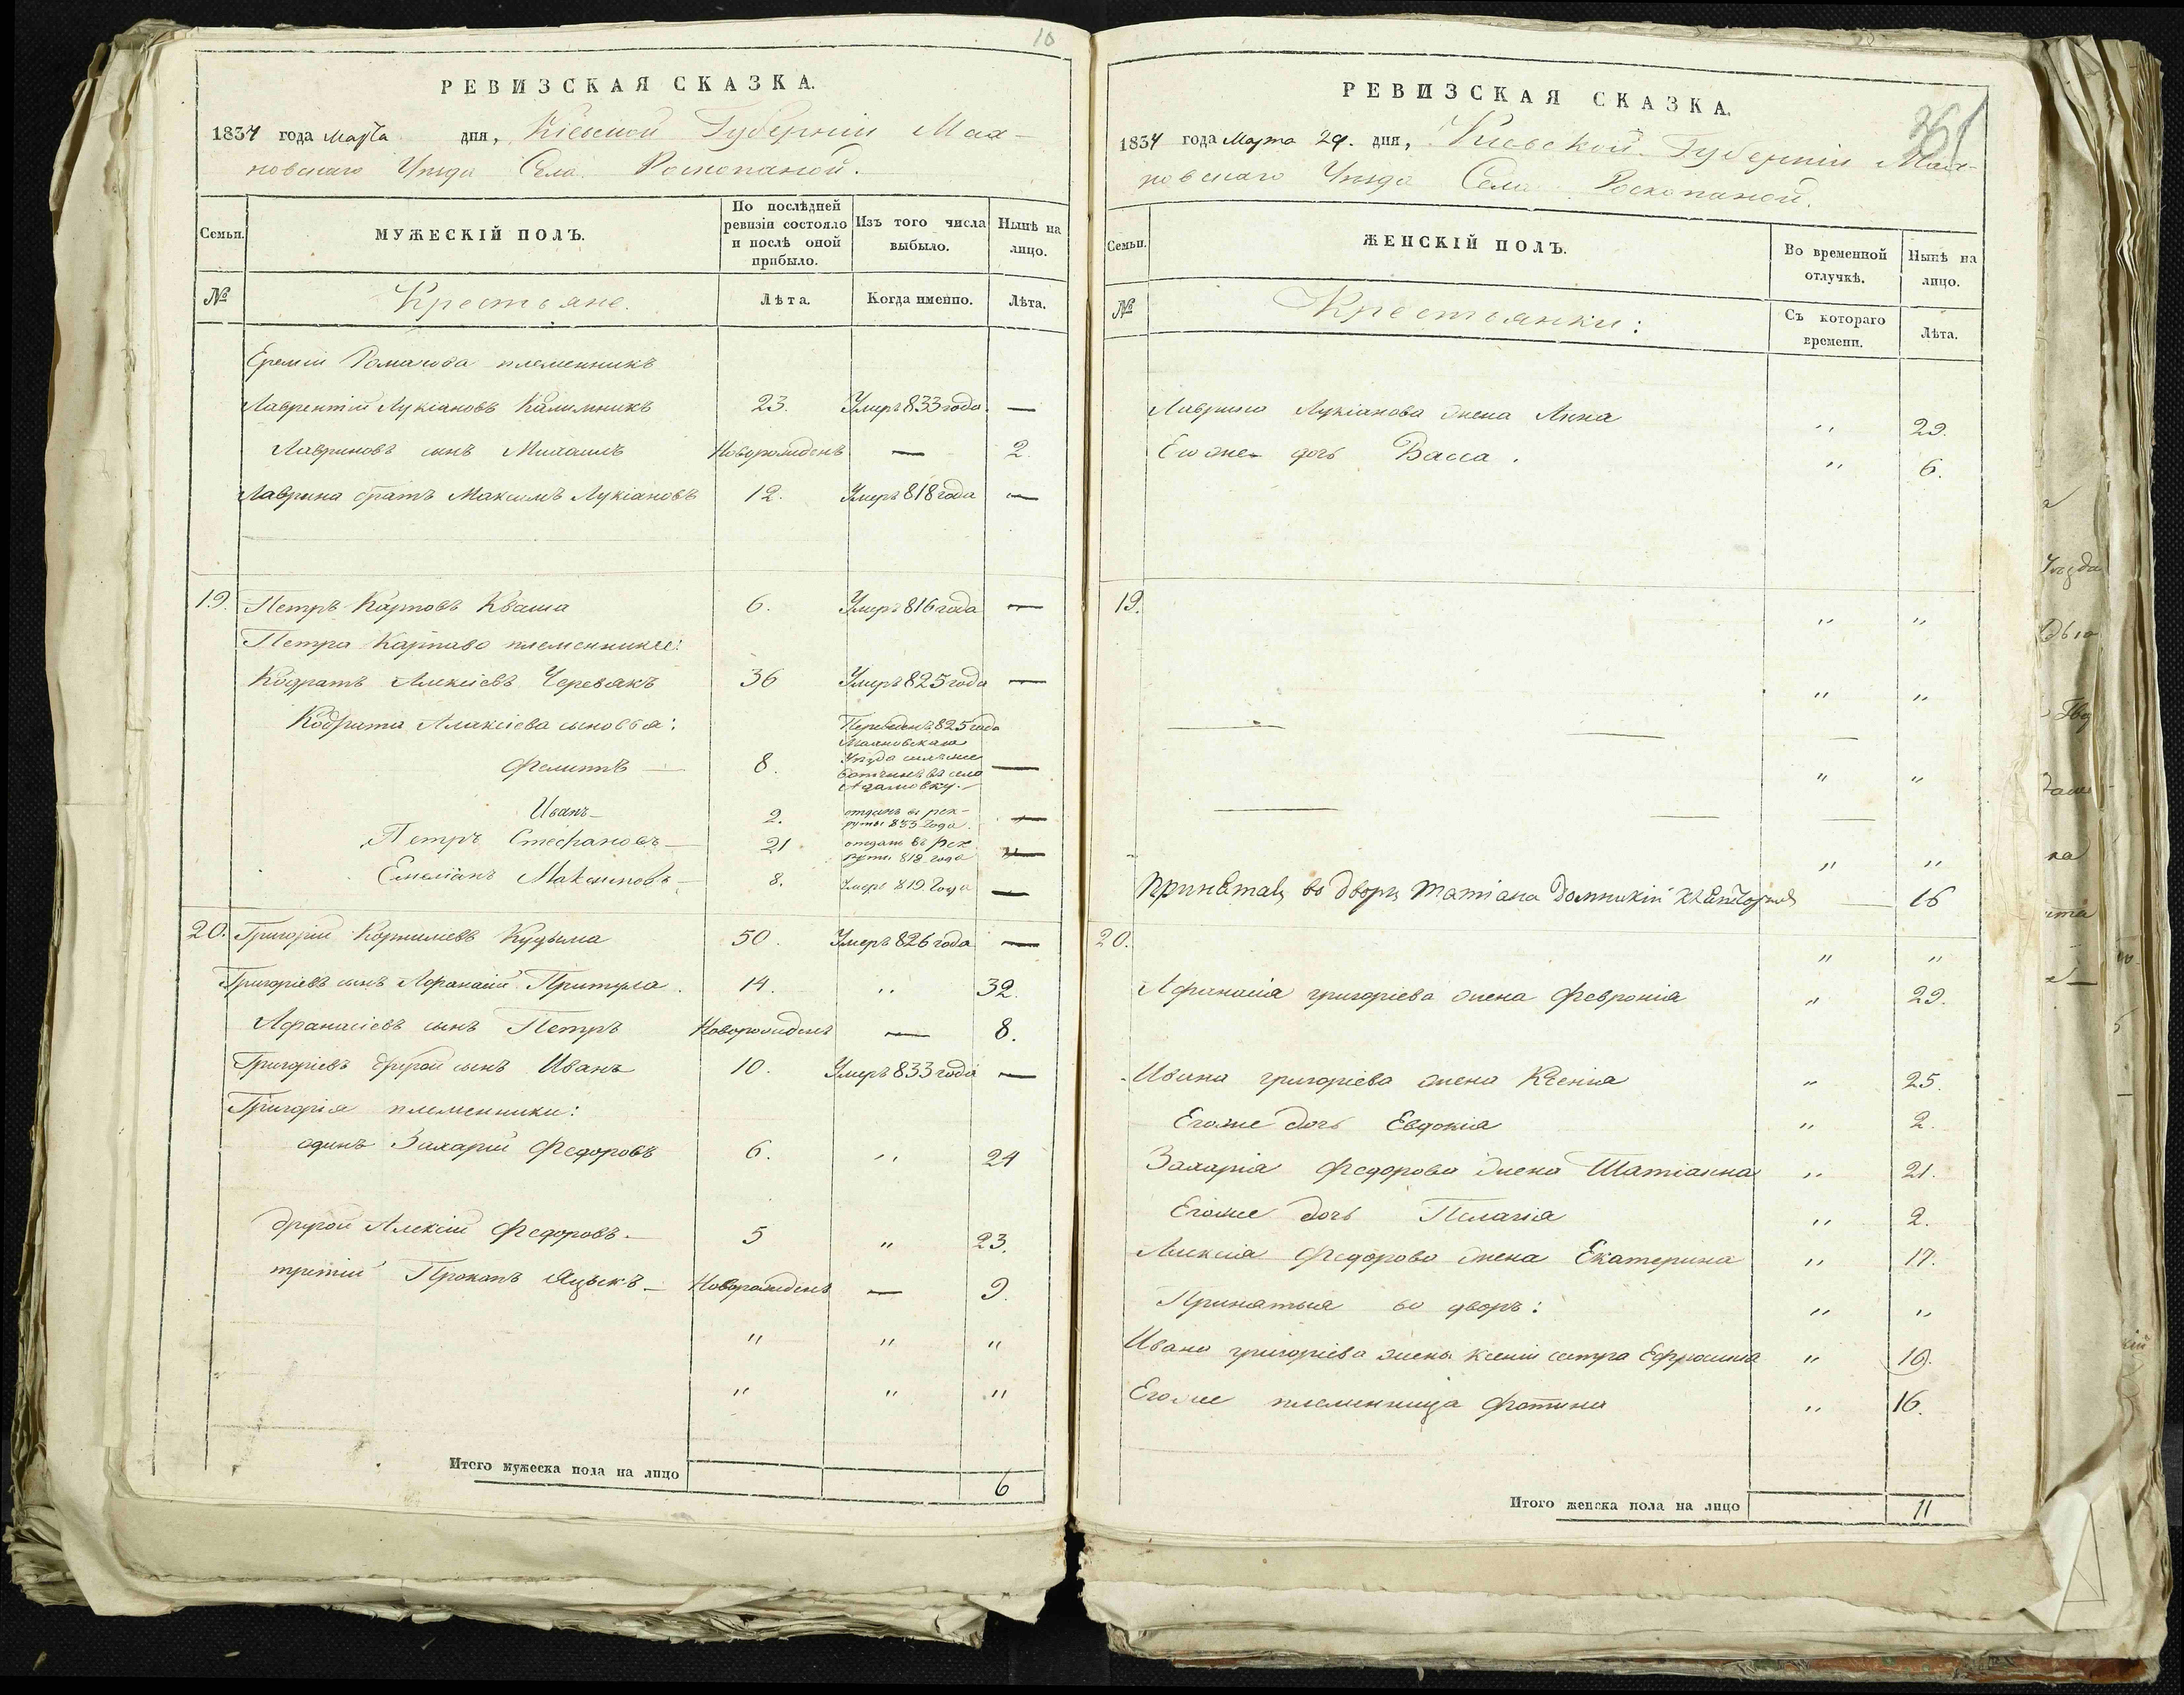 10
РЕВИЗСКАЯ СКАЗКА.
1834 года Марта дня, Кіевской Губерніи Мах-
новскаго Уѣзда Села Роскопаной.
Семьи.
МУЖЕСКІЙ ПОЛЪ.
По послѣдней ревизіи состояло и послѣ оной прибыло.
Изъ того числа выбыло.
Нынѣ на лицо.
№
Крестьяне.
Лѣта.
Когда именно.
Лѣта.
Еремія Романова племенникъ
Лаврентій Лукіановъ Калимникъ 23. Умеръ 833 года. —
Лавриновъ сынъ Михаилъ Новорожденъ — 2.
Лаврина братъ Максимъ Лукіановъ 12. Умеръ 818 года —
19. Петръ Карповъ Кваша 6. Умеръ 816 года —
Петра Карпова племенники:
Кодратъ Алексіевъ Червякъ 36 Умеръ 825 года —
Кодрата Алексіева сыновья:
Филипъ — 8. Переведенъ 825 года
Махновскаго
Уѣзда
въ село
Адамовку. —
Иванъ — 2. отданъ въ рек-
руты 833 года. —
Петръ Стефановъ — 21 отданъ въ рек
руты 818 года —
Емеліанъ Максимовъ — 8. Умеръ 819 года —
20. Григорій Корниліевъ Кудыма 50. Умеръ 826 года —
Григоріевъ сынъ Афанасій Притула. 14. " 32.
Афанасіевъ сынъ Петръ Новорожденъ — 8.
Григоріевъ другой сынъ Иванъ 10. Умеръ 833 года —
Григорія племенники:
одинъ Захарій Федоровъ 6. " 24
другой Алексій Федоровъ — 5 " 23.
третій Прокопъ Яцыкъ — Новорожденъ — 9.
" " "
" " "
Итого мужеска пола на лицо 6
361
РЕВИЗСКАЯ СКАЗКА.
1834 года Марта 29. дня, Кіевской Губерніи Мах-
новскаго Уѣзда Села Роскопаной.
Семьи.
ЖЕНСКІЙ ПОЛЪ.
Во временной отлучкѣ.
Нынѣ на лицо.
№
Крестьянки:
Съ котораго времени.
Лѣта.
Лаврина Лукіанова жена Анна " 29.
Его же дочь Васса. " 6.
19. " "
" "
— — — " "
— — — " "
во дворъ Татіана 16
20. " "
Афанасія григоріева жена Февронія " 29.
Ивана григоріева жена Ксенія " 25.
Егоже дочь Евдокія " 2.
Захарія Федорова жена Татіанна " 21.
Егоже дочь Пелагія " 2.
Алексія Федорова жена Екатерина " 17.
Принятыя во дворъ: " "
Ивана григоріева жены Ксеніи сестра Ефросинія " 10.
Егоже племенница Фотина " 16.
Итого женска пола на лицо 11